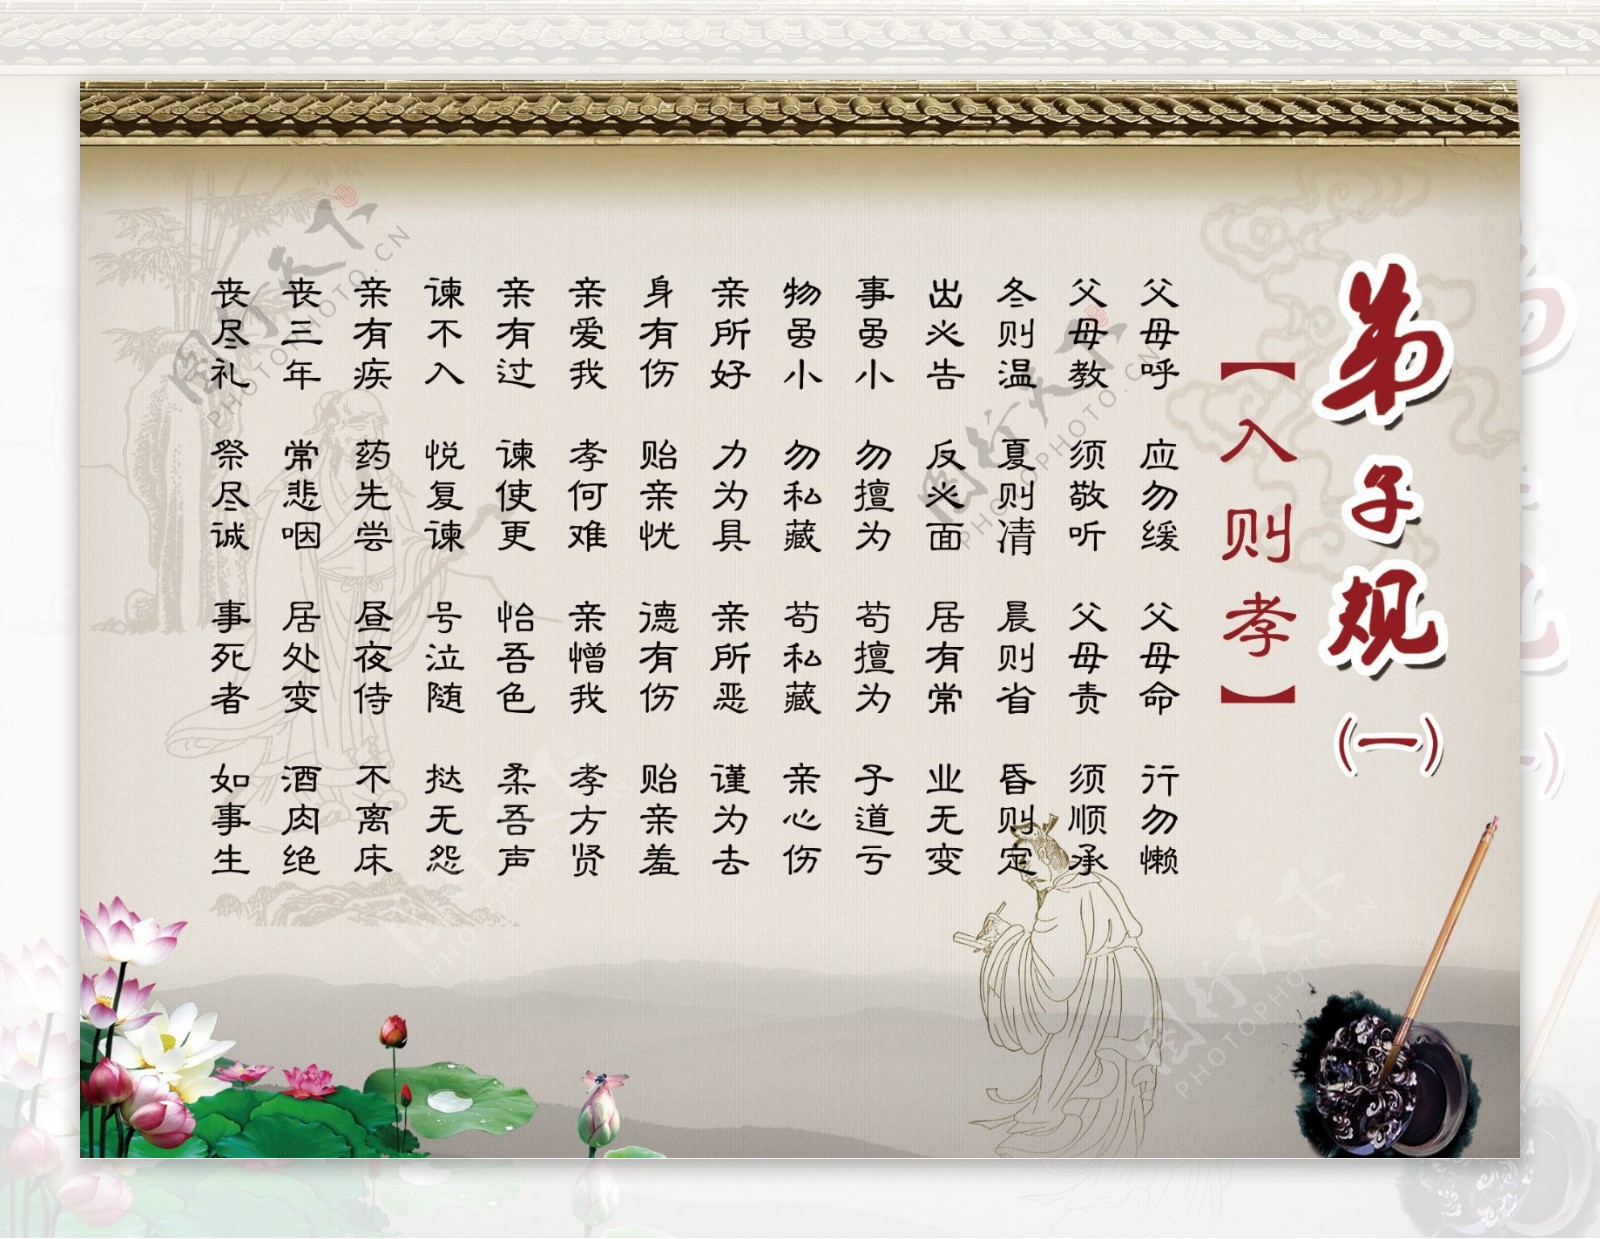 弟子规(一)
【入则孝】
父母呼 应勿缓 父母命 行勿懒
父母教 须敬听 父母责 须顺承
冬则温 夏则清 晨则省 昏则定
出必告 反必面 居有常 业无变
事虽小 勿擅为 苟擅为 子道亏
物虽小 勿私藏 苟私藏 亲心伤
亲所好 力为具 亲所恶 谨为去
身有伤 贻亲忧 德有伤 贻亲羞
亲爱我 孝何难 亲憎我 孝方贤
亲有过 谏使更 怡吾色 柔吾声
谏不入 悦复谏 号泣随 挞无怨
亲有疾 药先尝 昼夜侍 不离床
丧三年 常悲咽 居处变 酒肉绝
丧尽礼 祭尽诚 事死者 如事生
图行天下
PHOTOPHOTO.CN
图行天下
PHOTOPHOTO.CN
图行天下
PHOTOPHOTO.CN
图行天下
PHOTOPHOTO.CN